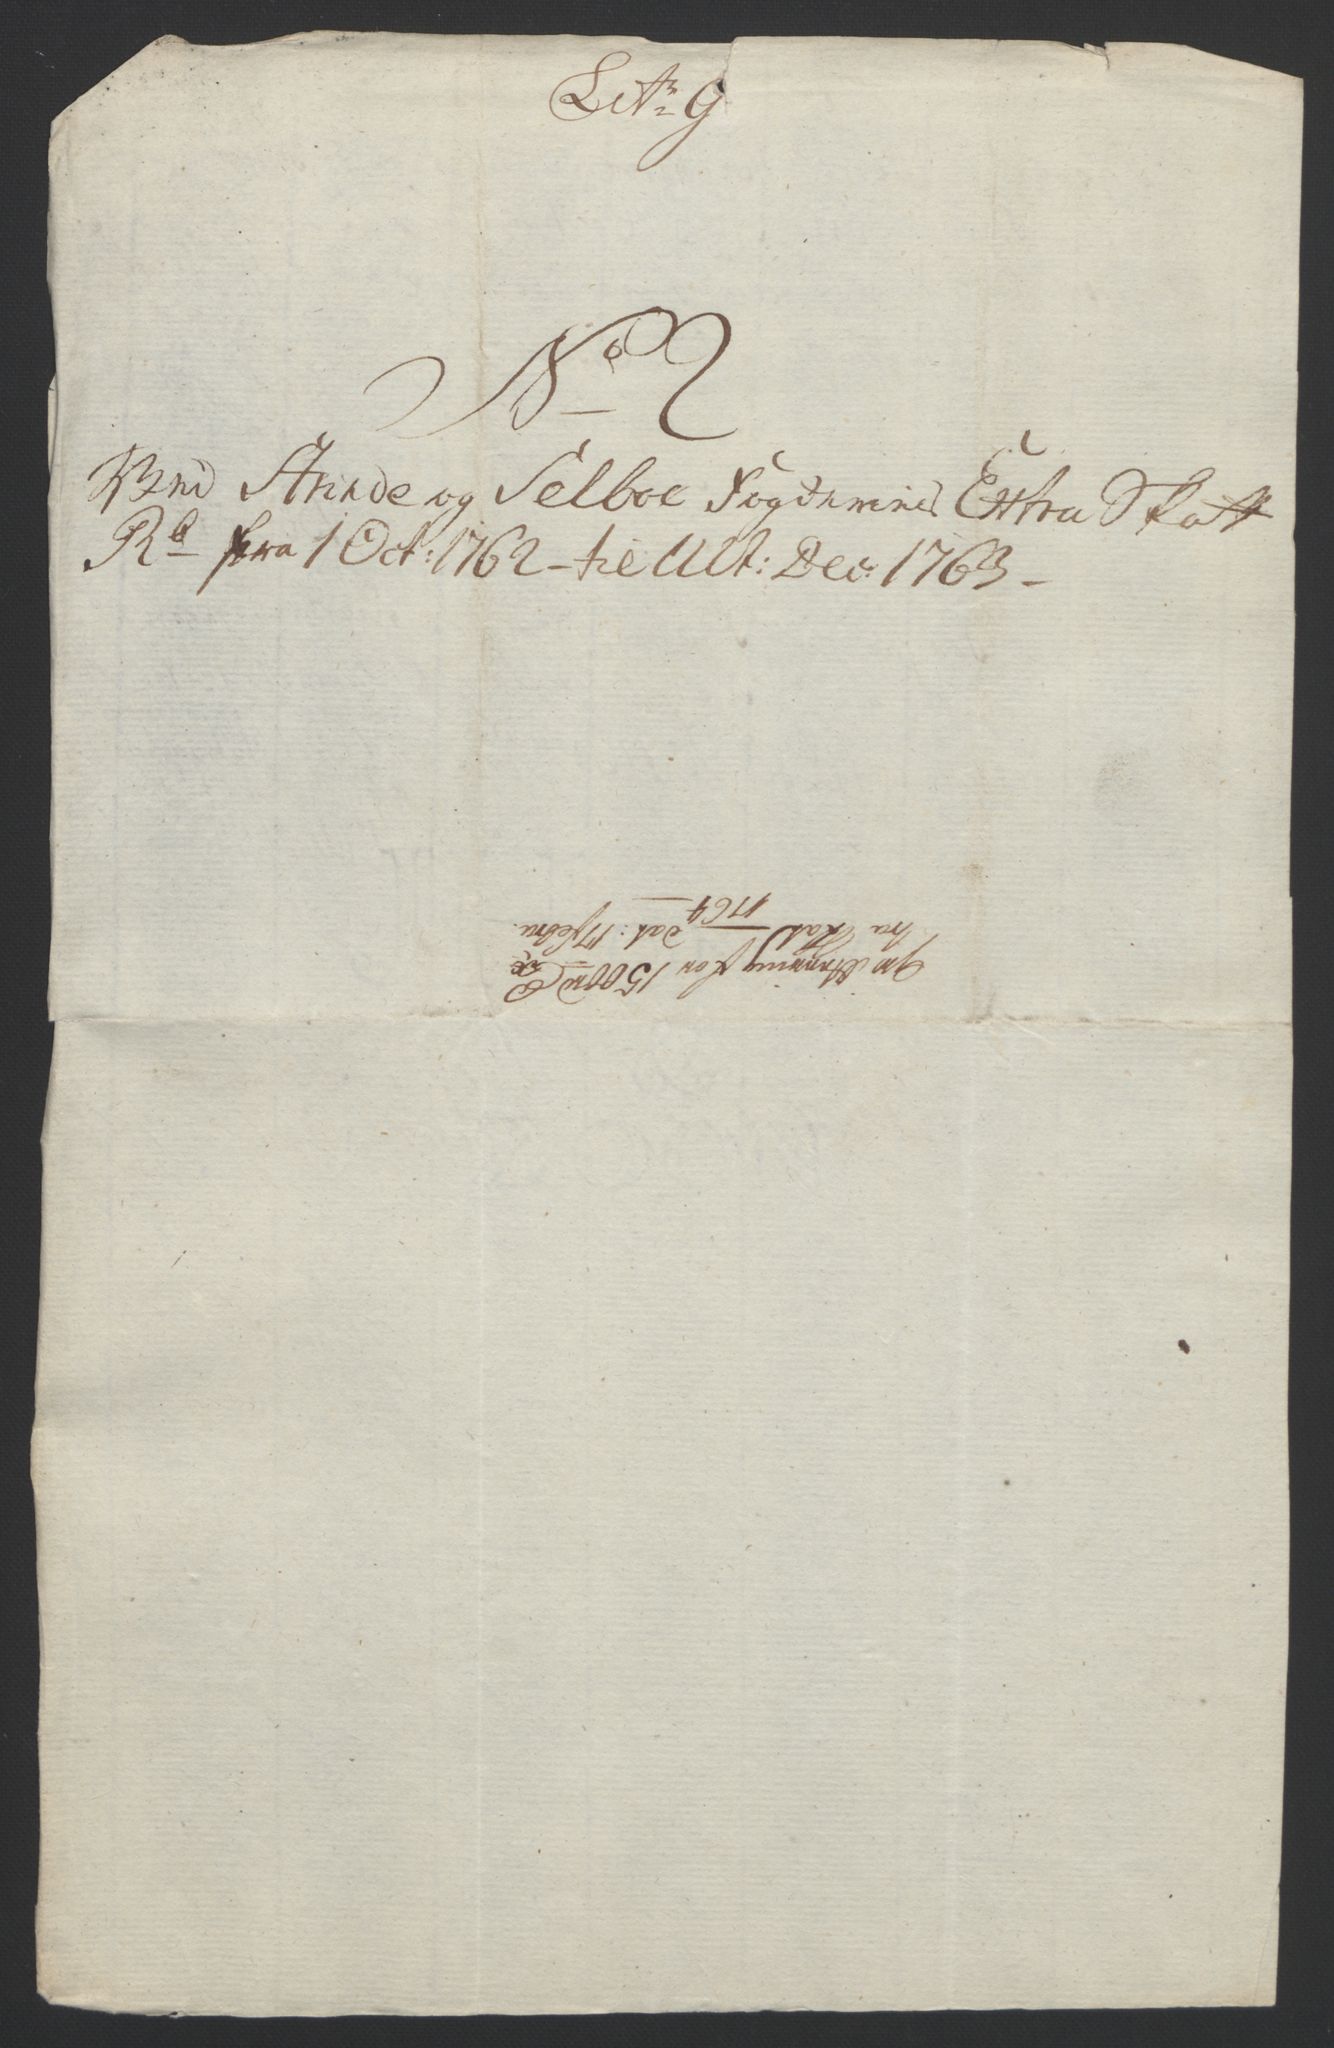 Litr G
No 2
Ved Strinde og Selboe Fogderies Extra Skatt
R. fra 1 Oct: 1762 – til Ult: Dec: 1763 –
for 1500 rd
fra dat: 17 Febru
1764